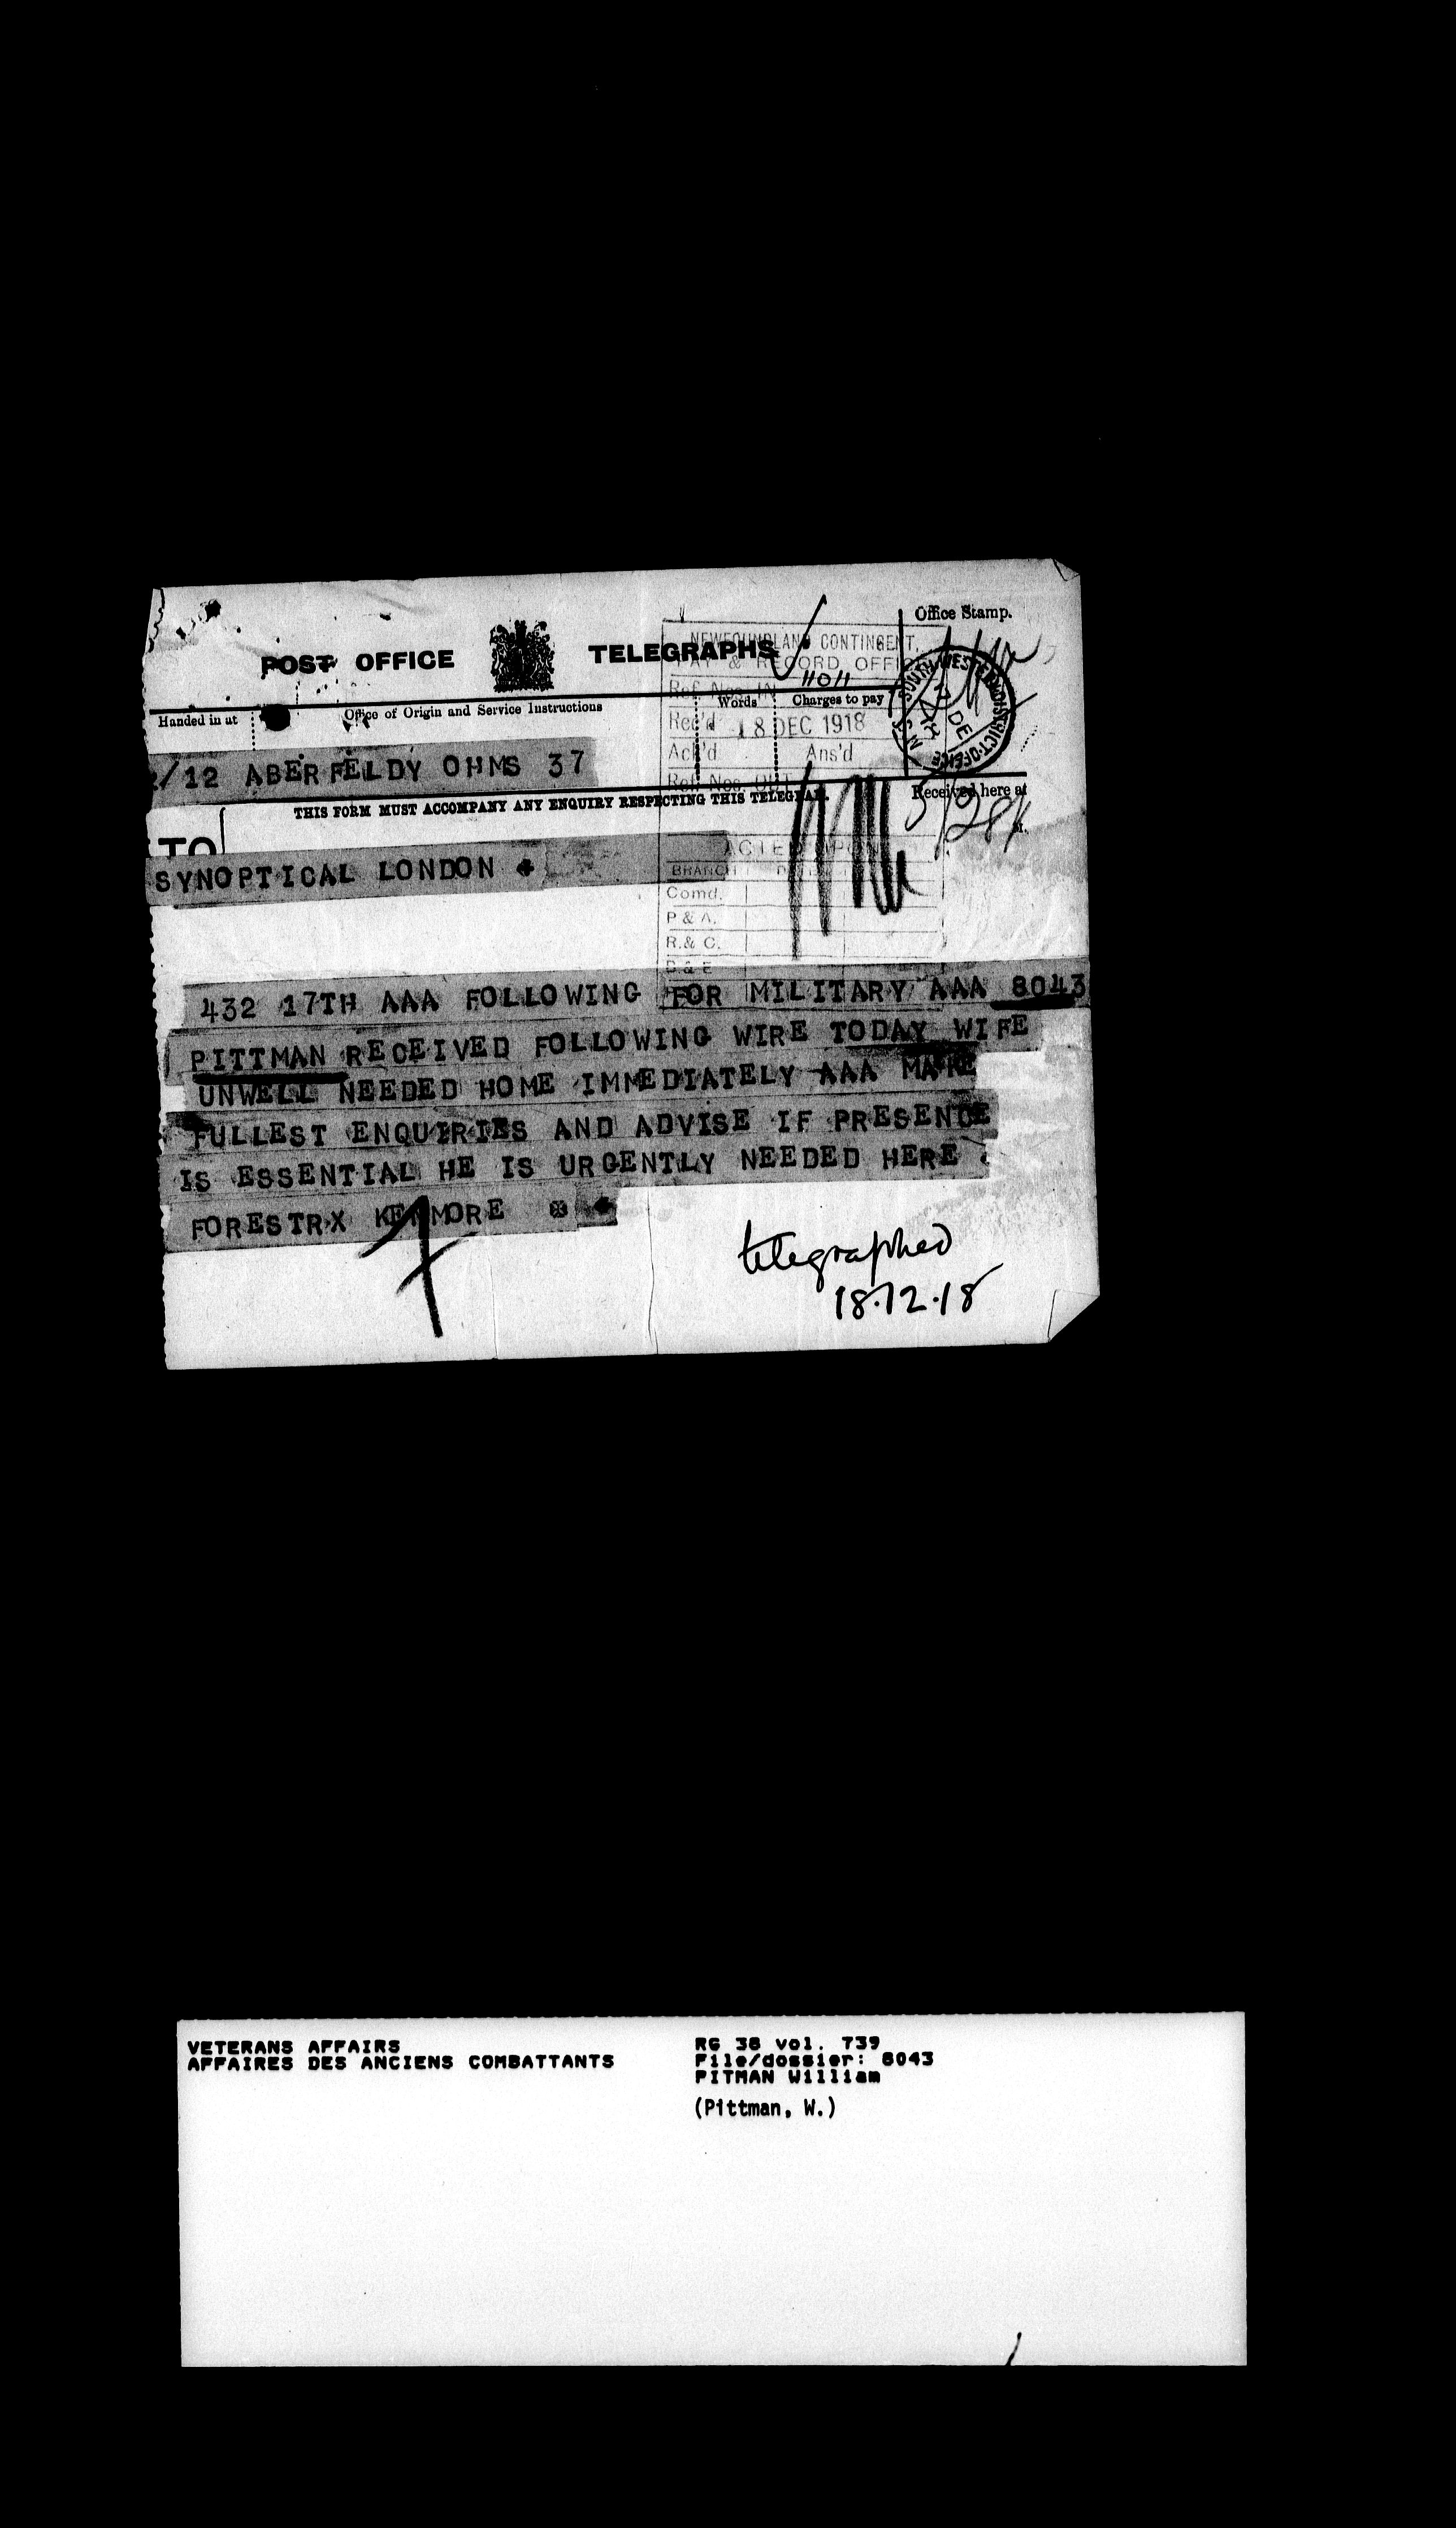 Office Stamp.
POST OFFICE TELEGRAPHS
NEWFOUNDLAND CONTINGENT,
PAY & RECORD OFFICE
11011
Ref. Nos. IN
Words Charges to pay
Handed in at Office of Origin and Service Instructions
Rec'd 18 DEC 1918
Ack'd Ans'd
Ref. Nos. OUT
/12 ABERFELDY OHMS 37
THIS FORM MUST ACCOMPANY ANY ENQUIRY RESPECTING THIS TELEGRAM.
Received here at
TO
SYNOPTICAL LONDON
ACTED UPON
BRANCH
Comd.
P & A.
R. & C.
432 17TH AAA FOLLOWING FOR MILITARY AAA 8043
PITTMAN RECEIVED FOLLOWING WIRE TODAY WIFE
UNWELL NEEDED HOME IMMEDIATELY AAA MAKE
FULLEST ENQUIRIES AND ADVISE IF PRESENCE
IS ESSENTIAL HE IS URGENTLY NEEDED HERE
FORESTRX KENMORE
telegraphed
18.12.18
VETERANS AFFAIRS
AFFAIRES DES ANCIENS COMBATTANTS
RG 38 vol. 739
File/dossier: 8043
PITMAN William
(Pittman, W.)